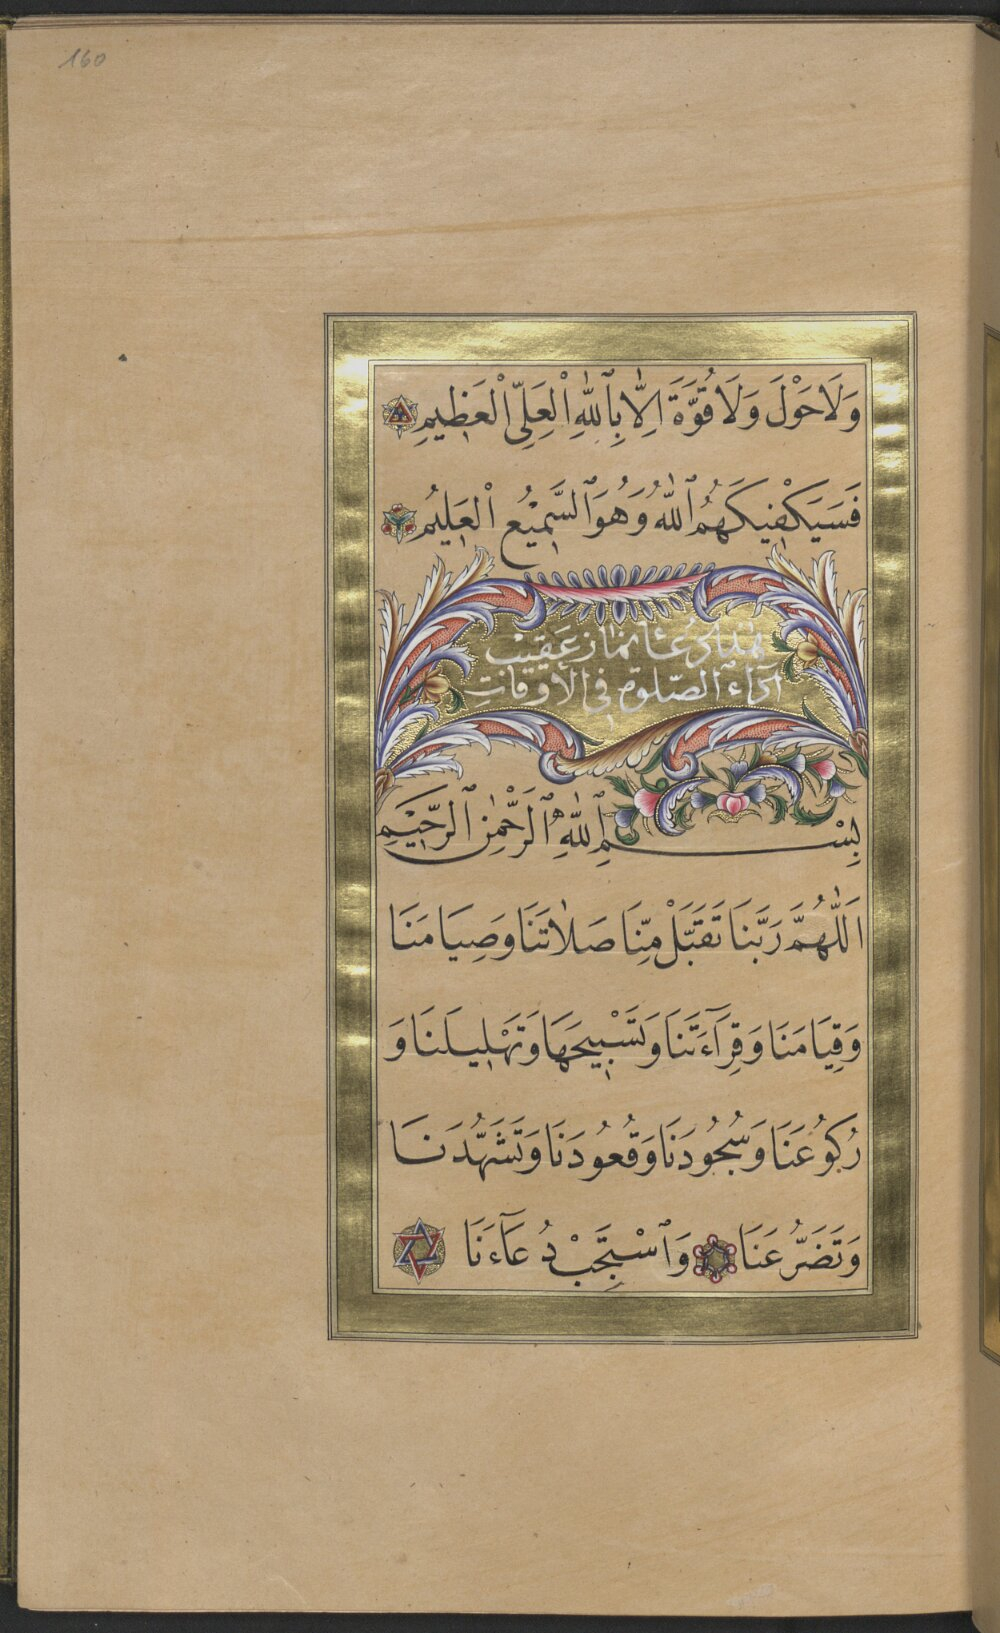 160
وَلَا حَوْلَ وَلَا قُوَّةَ اِلَّا بِٱللّٰهِ اْلعَلِىِّ اْلعَظِيمِ
فَسَيَكْفِيكَهُمُ ٱللّٰهُ وَهُوَ ٱلسَّمِيْعُ اْلعَلِيمُ
هٰذا دُعَاءُ نماز عَقِيبْ
اَدَاءِ ٱلصّلوةِ فِي الْاَوقاتِ
بِسْمِ ٱللّٰهِ ٱلرَّحْمٰنِ ٱلرَّحِيْمِ
اَللّٰهُمَّ رَبَّنَا تَقَبَّلْ مِنَّا صَلَاتَنَا وَصِيَامَنَا
وَقِيَامَنَا وَقِرَآءَتَنَا وَتَسْبِيحَهَا وَتَهْلِيلَنَا وَ
رُكُوعَنَا وَسُجُودَنَا وَقُعُودَنَا وَتَشَهُّدَنَا
وَتَضَرُّعَنَا وَٱسْتَجِبْ دُعَآءَنَا